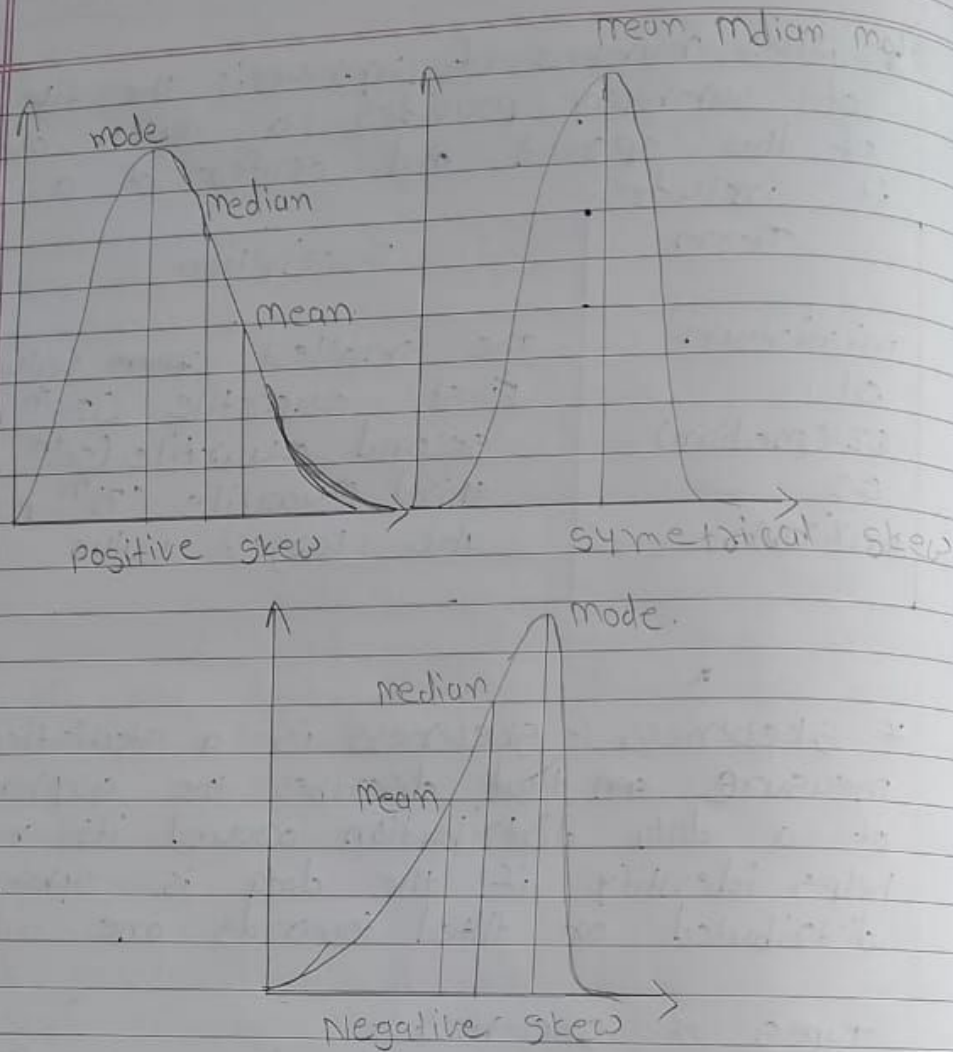 mean, mdian
mode
median
mean
positive skew
symetrical skew
mode.
median
mean
Negative skew